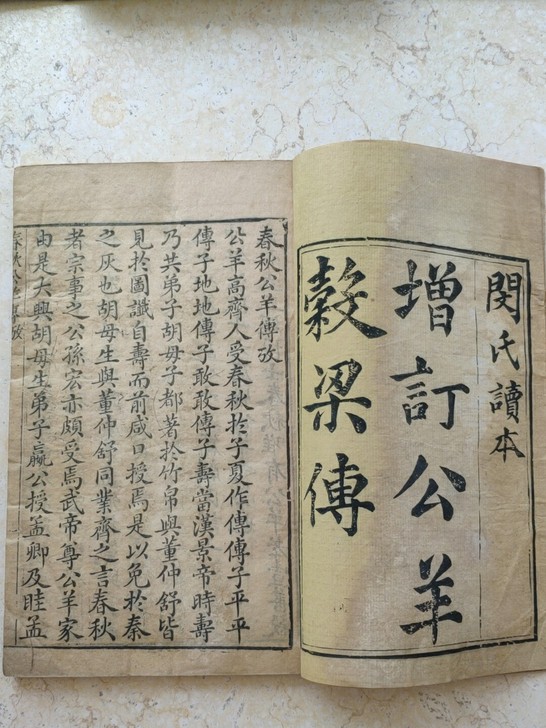 閔氏讀本
增訂公羊
穀梁傳
春秋公羊傳攷
公羊高齊人受春秋於子夏作傳傳子平平
傳子地地傳子敢敢傳子壽當漢景帝時壽
乃共弟子胡毋子都著於竹帛與董仲舒皆
見於圖讖自壽而前咸口授焉是以免於秦
之灰也胡毋生與董仲舒同業齊之言春秋
者宗事之公孫宏亦頗受焉武帝尊公羊家
由是大興胡毋生弟子嬴公授孟卿及眭孟
春秋公羊傳攷